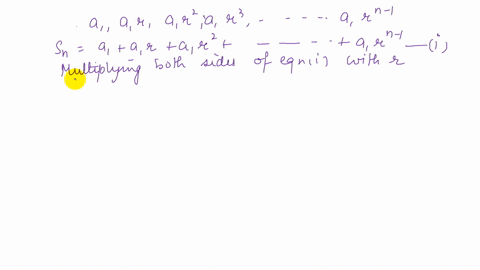 a₁, a₁r, a₁r², a₁r³, - - - - - a₁rⁿ⁻¹
Sₙ = a₁ + a₁r + a₁r² + - - - - - + a₁rⁿ⁻¹ —(i)
Multiplying both sides of eqn(i) with r